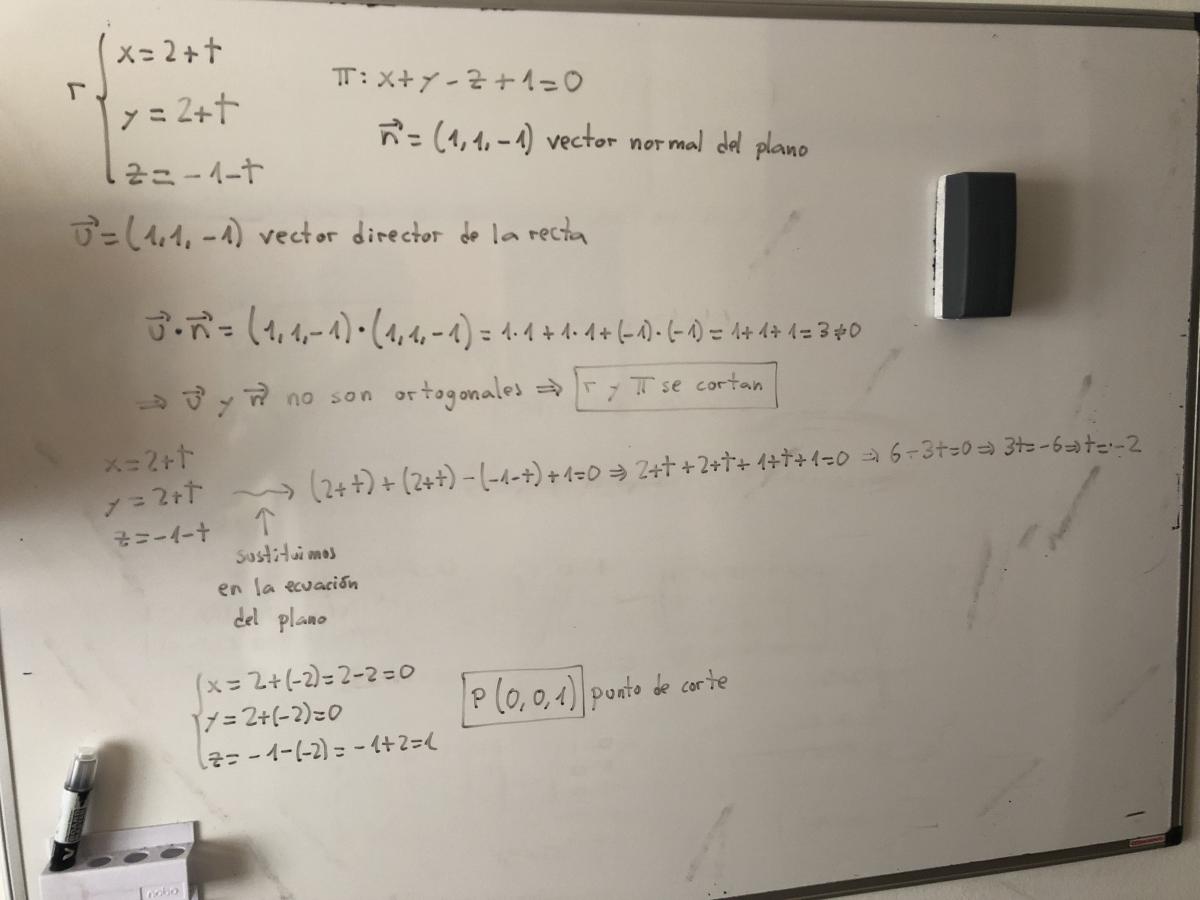 r { x = 2 + t
y = 2 + t
z = -1 - t
π: x + y - z + 1 = 0
n⃗ = (1, 1, -1) vector normal del plano
v⃗ = (1, 1, -1) vector director de la recta
v⃗ · n⃗ = (1, 1, -1) · (1, 1, -1) = 1·1 + 1·1 + (-1)·(-1) = 1 + 1 + 1 = 3 ≠ 0
⇒ v⃗ y n⃗ no son ortogonales ⇒ r y π se cortan
x = 2 + t
y = 2 + t
z = -1 - t
(2+t) + (2+t) - (-1-t) + 1 = 0 ⇒ 2+t + 2+t + 1+t + 1 = 0 ⇒ 6 - 3t = 0 ⇒ 3t = -6 ⇒ t = -2
sustituimos
en la ecuación
del plano
x = 2 + (-2) = 2 - 2 = 0
y = 2 + (-2) = 0
z = -1 - (-2) = -1 + 2 = 1
P (0, 0, 1) punto de corte
nobo